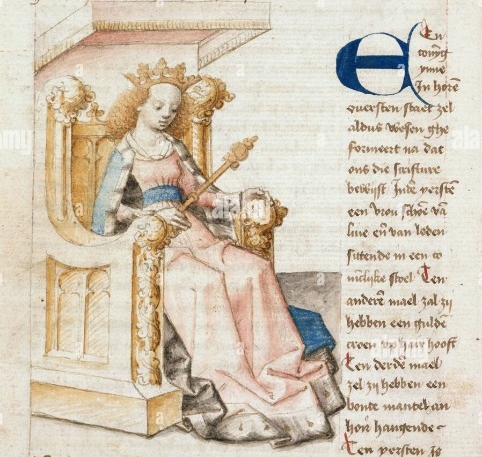 En
conīg
ynne
In horē
ouersten staet zel
aldus wesen ghe
formeert na dat
ons die scrifture
bewijst Inde yersten
een vrou schoē van
liue en̄ van leden
sittende in een co
nīclijke stoel Ten
anderē mael zal zij
hebben een guldē
croen op haer hooft
Ten derdē mael
zel zij hebben een
bonte mantel an
horē hangende
Ten yersten Is